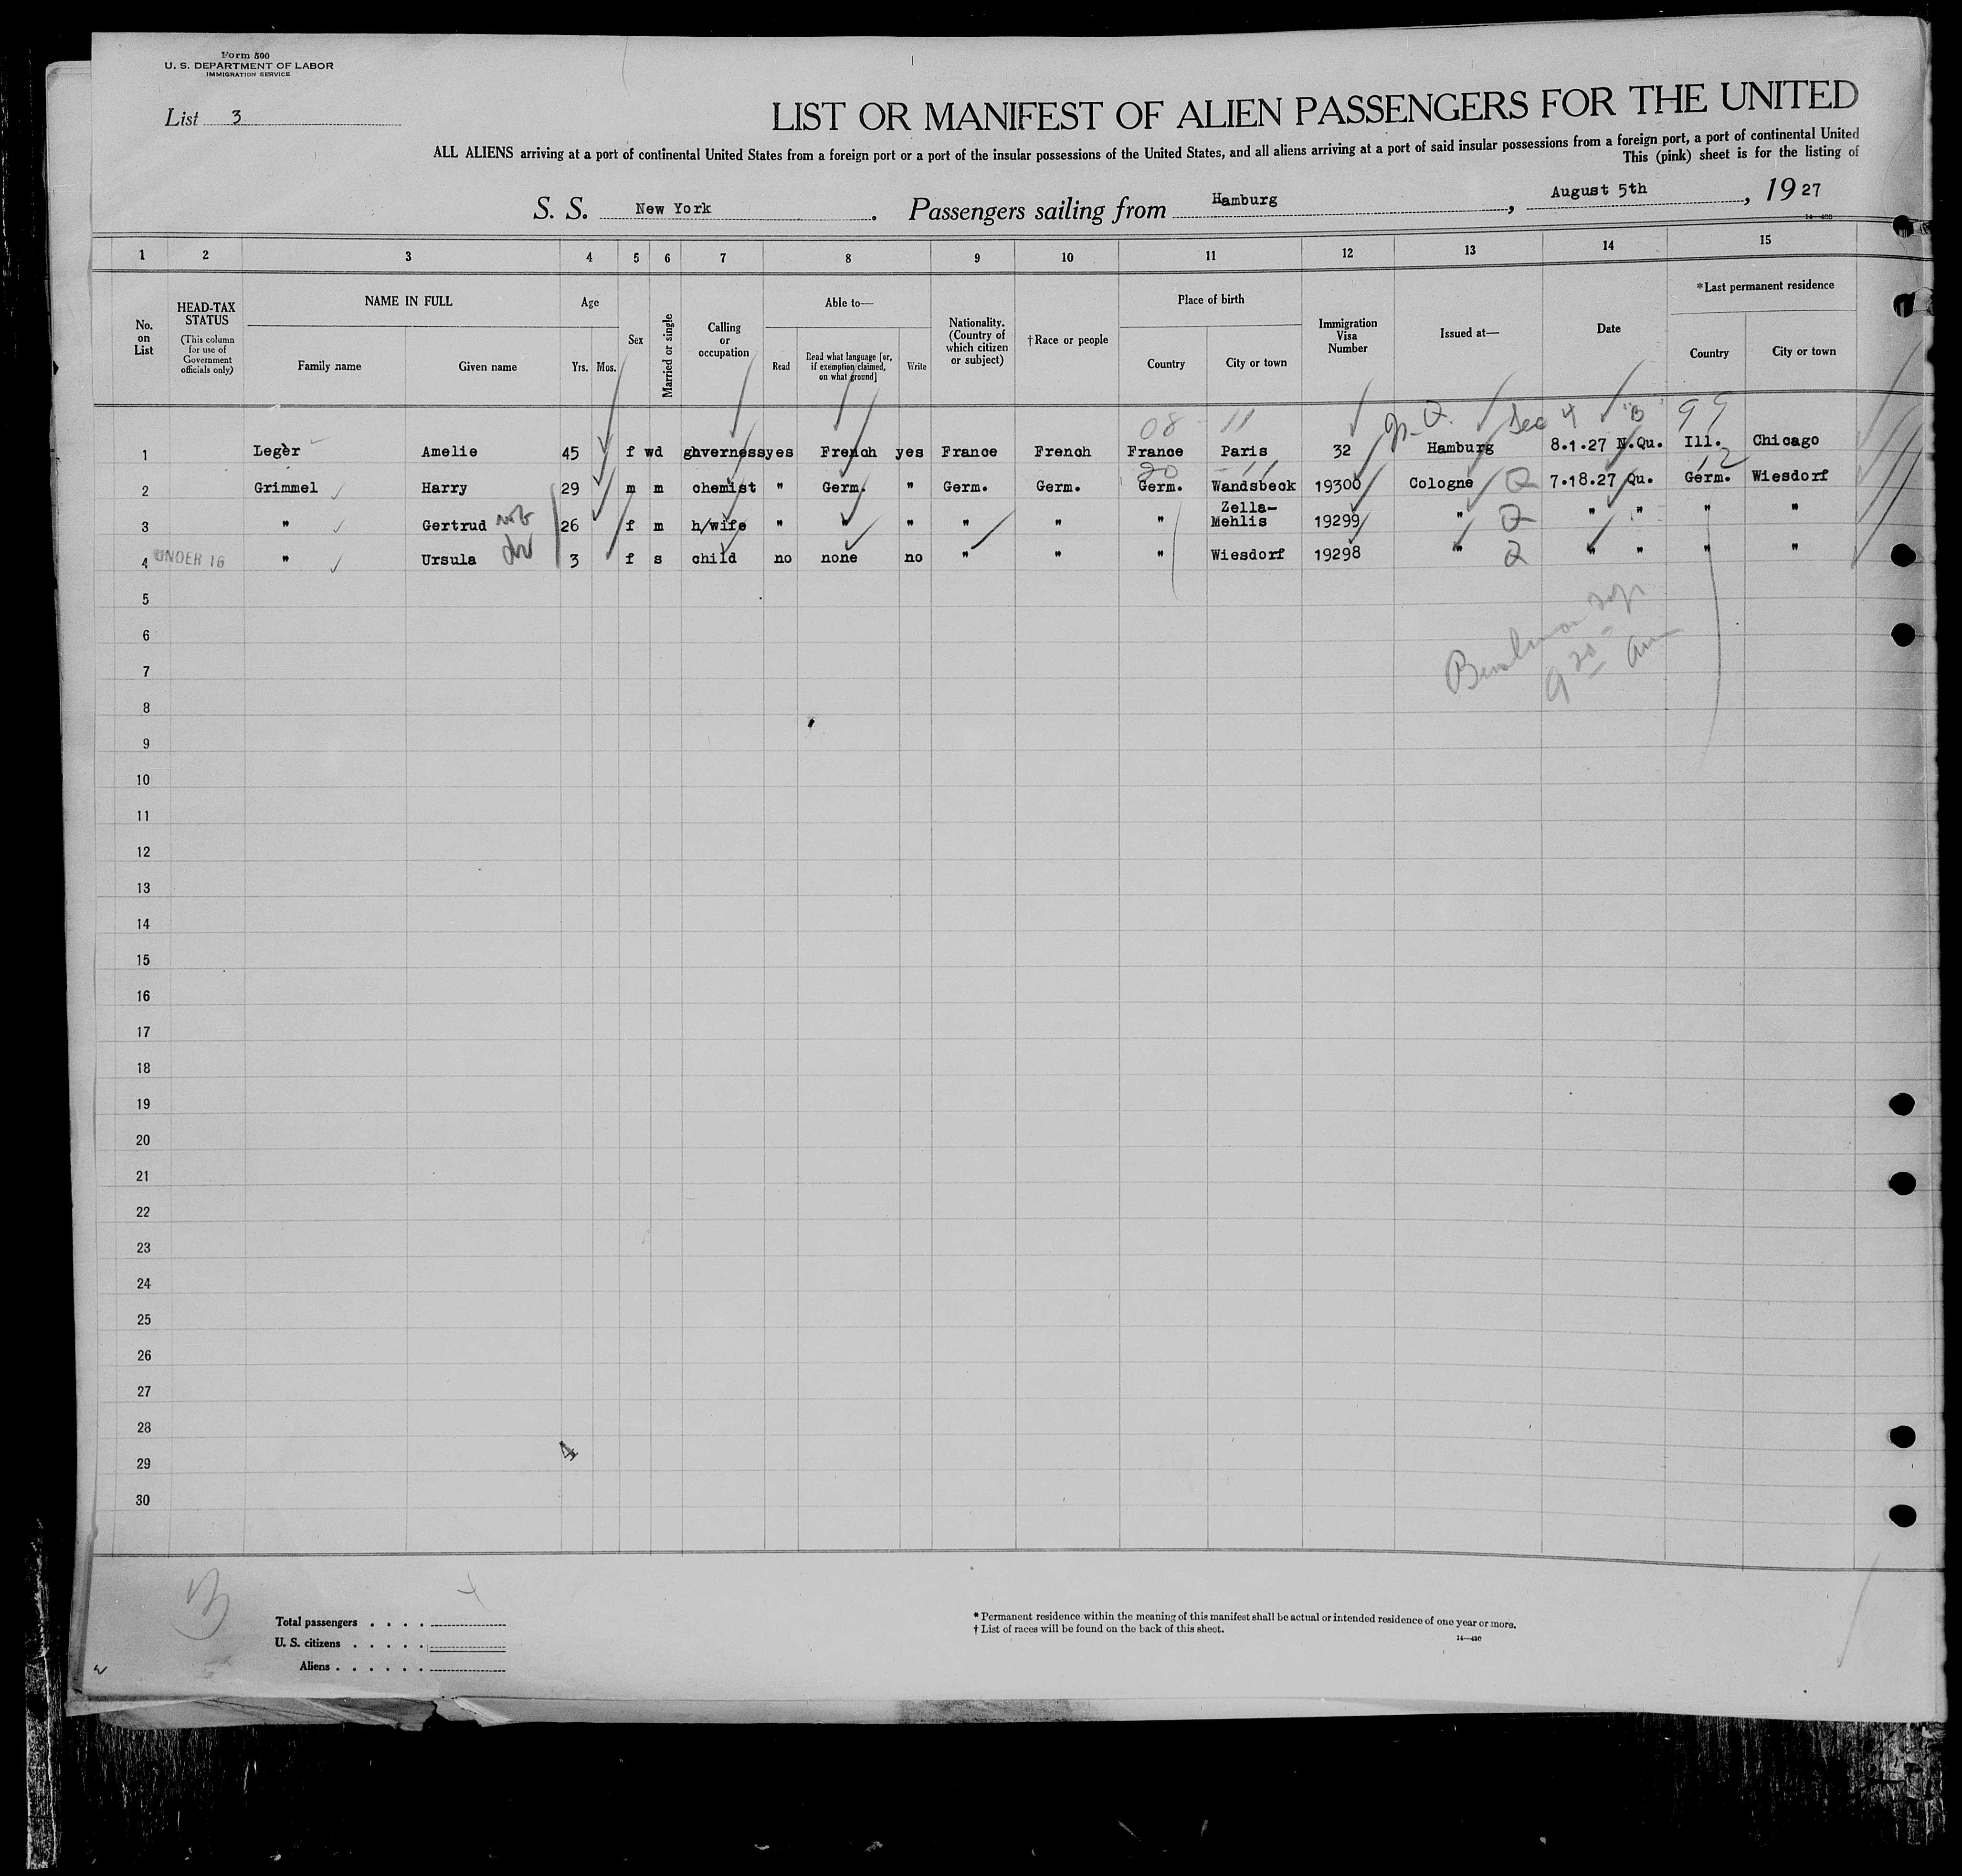 Form 500
U. S. DEPARTMENT OF LABOR
IMMIGRATION SERVICE
List 3
LIST OR MANIFEST OF ALIEN PASSENGERS FOR THE UNITED
ALL ALIENS arriving at a port of continental United States from a foreign port or a port of the insular possessions of the United States, and all aliens arriving at a port of said insular possessions from a foreign port, a port of continental United
This (pink) sheet is for the listing of
S. S. New York. Passengers sailing from Hamburg, August 5th, 1927
14—430
1 2 3 4 5 6 7 8 9 10 11 12 13 14 15
No. on List
HEAD-TAX STATUS
(This column for use of Government officials only)
NAME IN FULL
Family name Given name
Age
Yrs. Mos.
Sex
Married or single
Calling or occupation
Able to—
Read
Read what language [or, if exemption claimed, on what ground]
Write
Nationality. (Country of which citizen or subject)
†Race or people
Place of birth
Country City or town
Immigration Visa Number
Issued at—
Date
*Last permanent residence
Country City or town
08 - 11 Sec 4 "B" 99
1 Leger Amelie 45 f wd governess yes French yes France French France Paris 32 Hamburg 8.1.27 N.Qu. Ill. Chicago
20 - 11 12
2 Grimmel Harry 29 m m chemist " Germ. " Germ. Germ. Germ. Wandsbeck 19300 Cologne Q 7.18.27 Qu. Germ. Wiesdorf
3 " Gertrud 26 f m h/wife " " " " " " Zella-Mehlis 19299 " Q " " " "
4 UNDER 16 " Ursula 3 f s child no none no " " " Wiesdorf 19298 " Q " " " "
5
6
7
8
9
10
11
12
13
14
15
16
17
18
19
20
21
22
23
24
25
26
27
28
29
30
9 20 am
4
Total passengers . . . .
U. S. citizens . . . . .
Aliens . . . . . .
* Permanent residence within the meaning of this manifest shall be actual or intended residence of one year or more.
† List of races will be found on the back of this sheet.
14—430